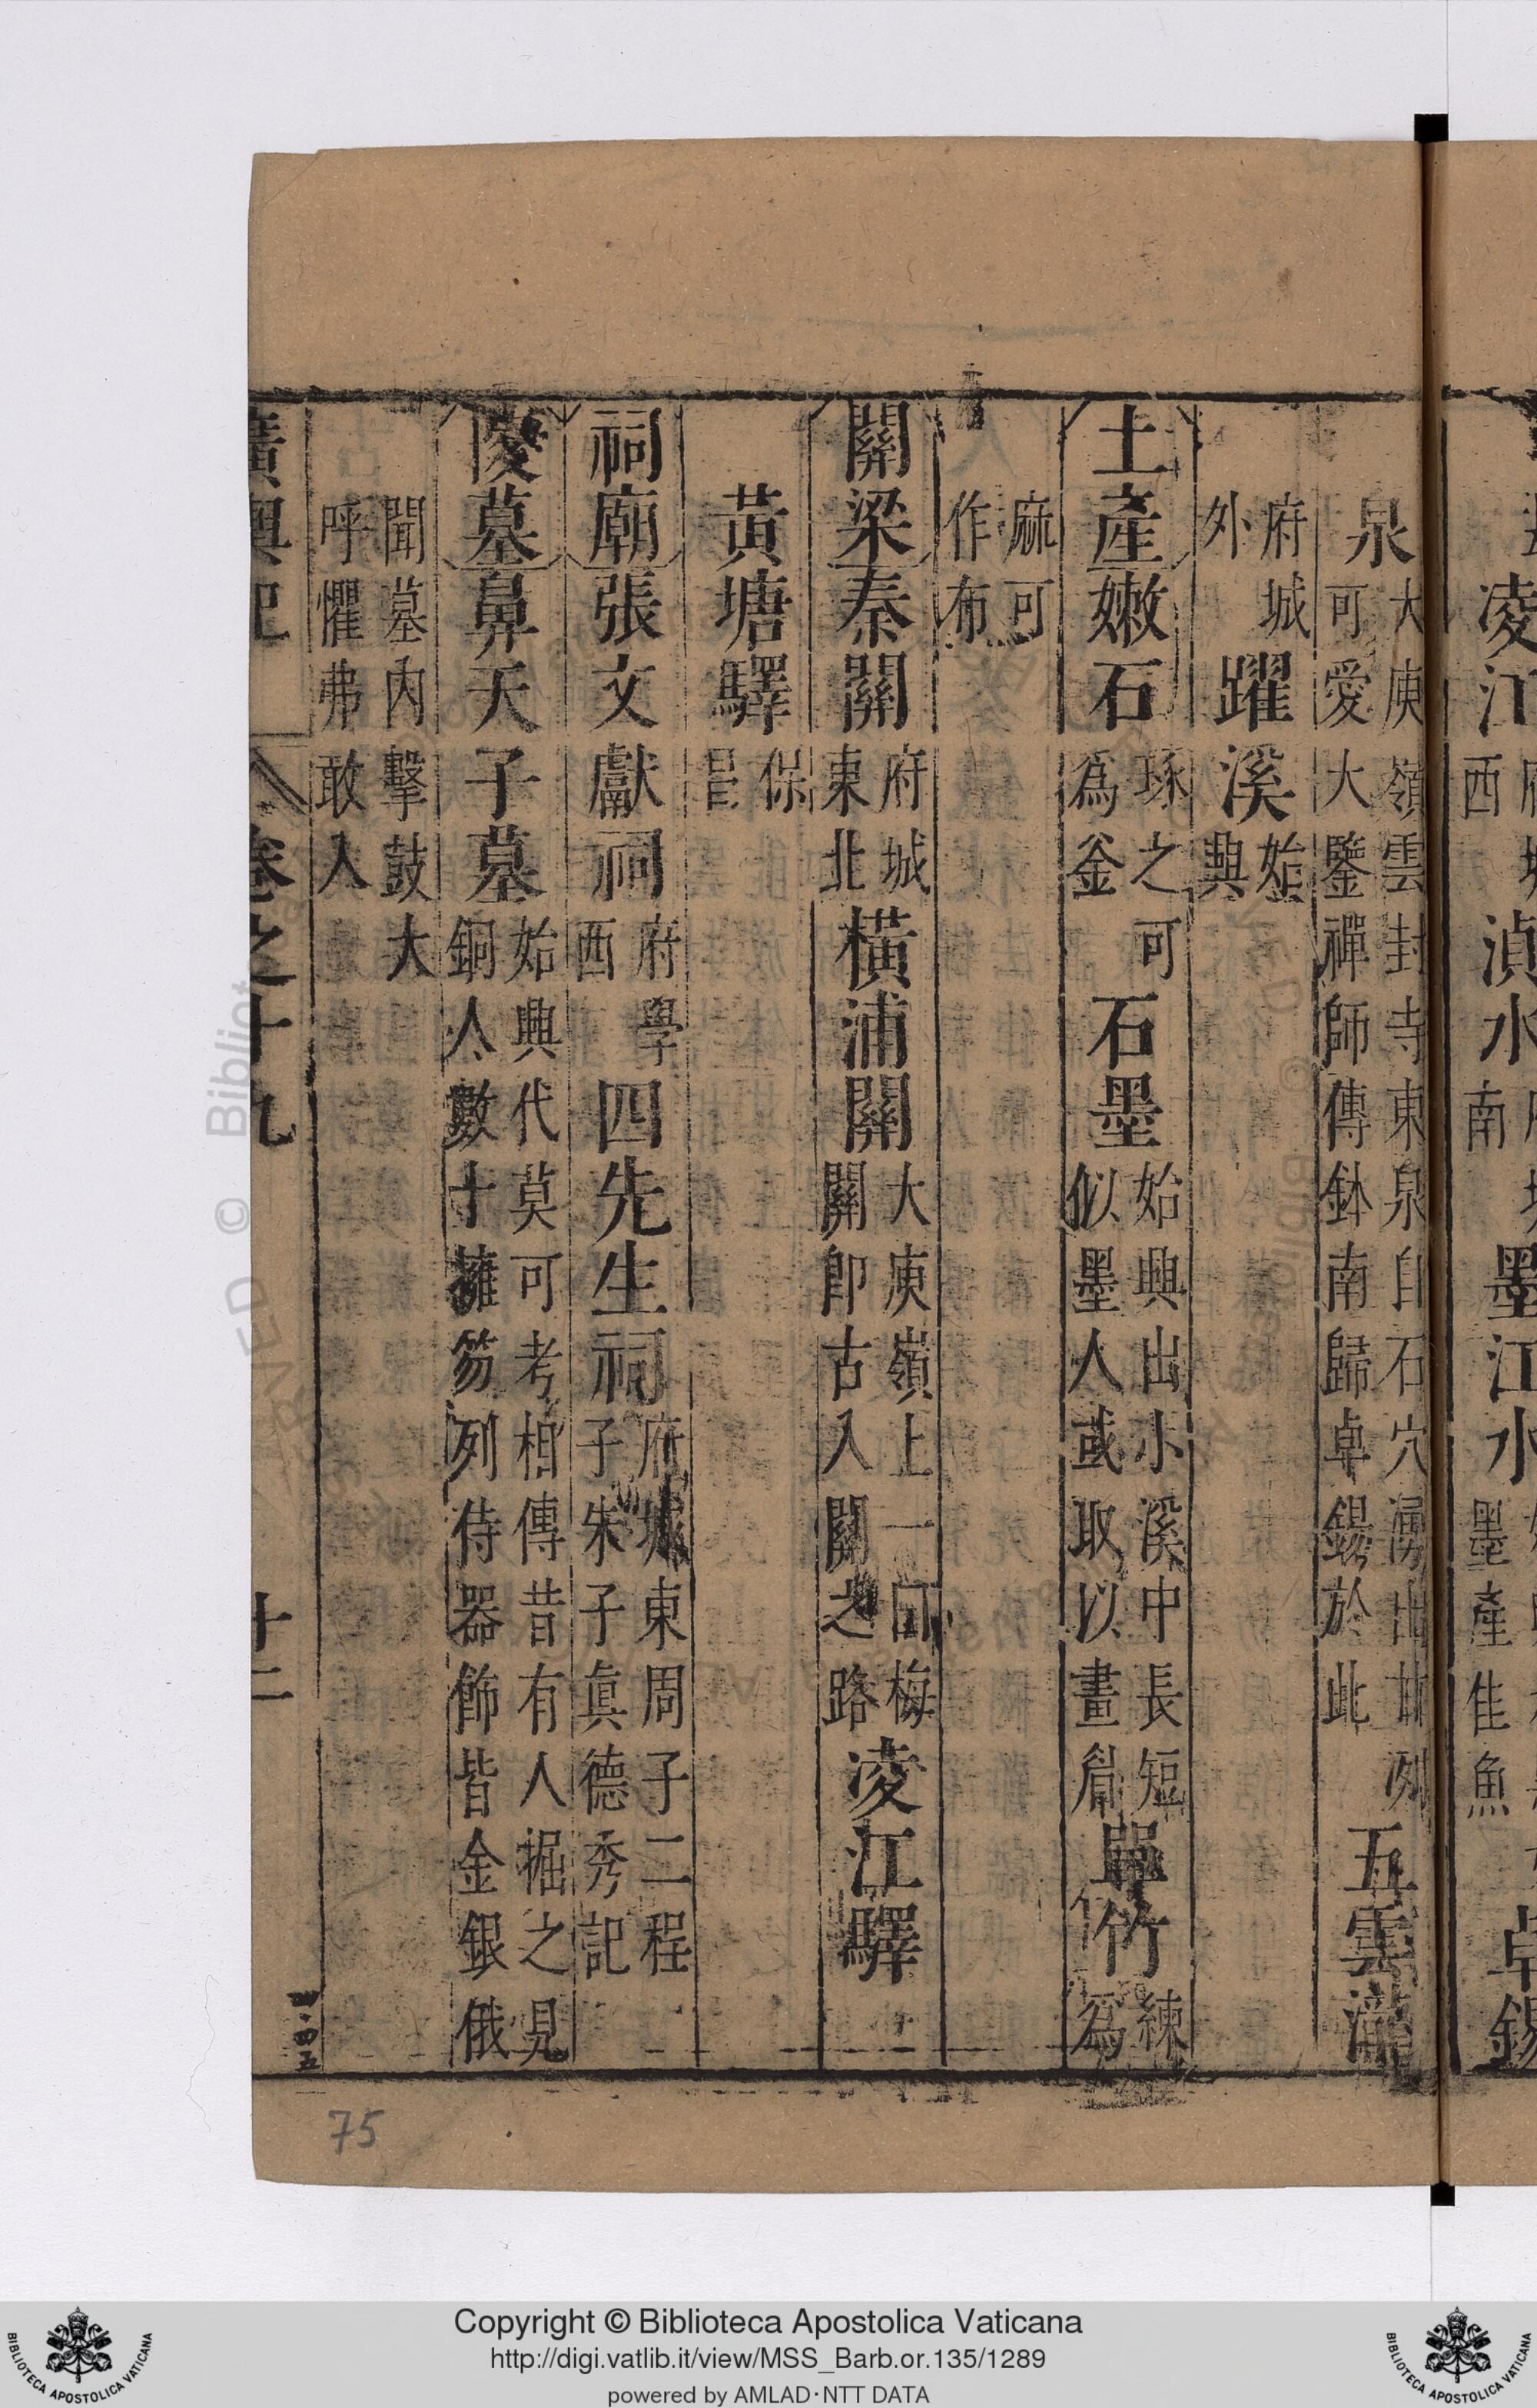 凌江西 湞水南 墨江水墨產佳魚 卓錫
泉大庾嶺雲封寺東泉自石穴湧出甘冽可愛大鑒禪師傳鉢南歸卓錫於此 五雲瀧
府城外 躍溪始興
土產嫩石琢之可為釜 石墨始興出小溪中長短似墨人或取以畫眉 單竹練為
麻可作布
關梁秦關府城東北 橫浦關大庾嶺上一曰梅關即古入關之路 凌江驛
黃塘驛保昌
祠廟張文獻祠府學西 四先生祠府城東周子二程子朱子真德秀記
陵墓鼻天子墓始興代莫可考相傳昔有人掘之見銅人數十擁笏列侍器飾皆金銀俄
聞墓內擊鼓大呼懼弗敢入
廣輿記 卷之十九 廿二
75
Copyright © Biblioteca Apostolica Vaticana
http://digi.vatlib.it/view/MSS_Barb.or.135/1289
powered by AMLAD·NTT DATA
BIBLIOTECA APOSTOLICA VATICANA
BIBLIOTECA APOSTOLICA VATICANA